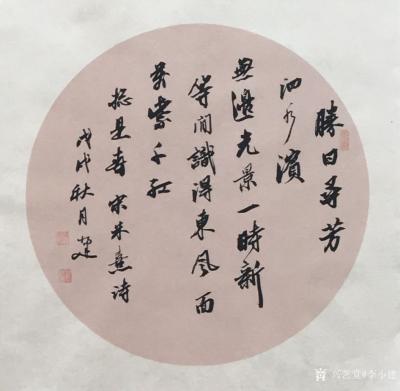 勝日尋芳
泗水濱
無邊光景一時新
等閒識得東風面
萬紫千紅
總是春 宋朱熹诗
戊戌秋月